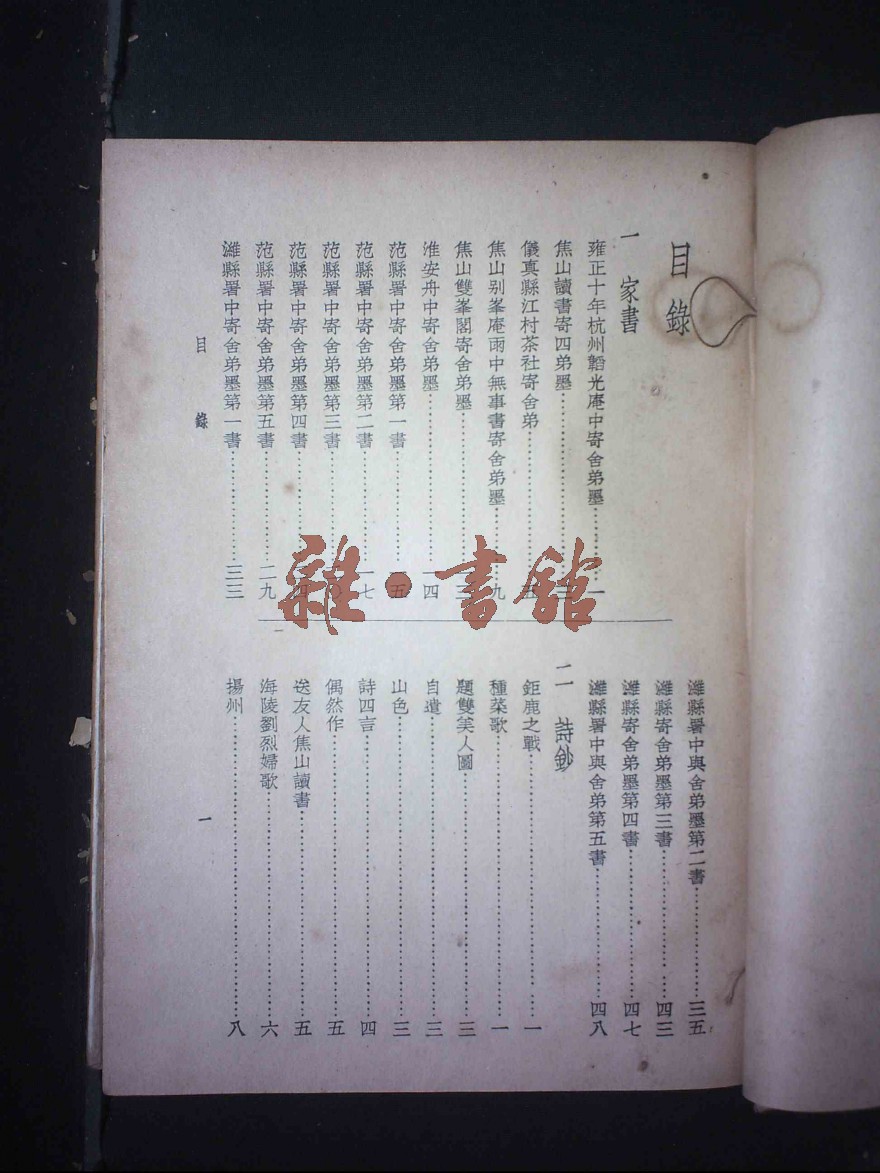 目錄
一 家書
雍正十年杭州韜光庵中寄舍弟墨……一
焦山讀書寄四弟墨……
儀真縣江村茶社寄舍弟……五
焦山別峯庵雨中無事書寄舍弟墨……九
焦山雙峯閣寄舍弟墨……三
淮安舟中寄舍弟墨……一四
范縣署中寄舍弟墨第一書……五
范縣署中寄舍弟墨第二書……一七
范縣署中寄舍弟墨第三書……
范縣署中寄舍弟墨第四書……四
范縣署中寄舍弟墨第五書……二九
濰縣署中寄舍弟墨第一書……三三
濰縣署中與舍弟墨第二書……三五
濰縣寄舍弟墨第三書……四三
濰縣寄舍弟墨第四書……四七
濰縣署中與舍弟第五書……四八
二 詩鈔
鉅鹿之戰……一
種菜歌……一
題雙美人圖……三
自遣……三
山色……三
詩四言……四
偶然作……五
送友人焦山讀書……五
海陵劉烈婦歌……六
揚州……八
目錄
一
雜·書館